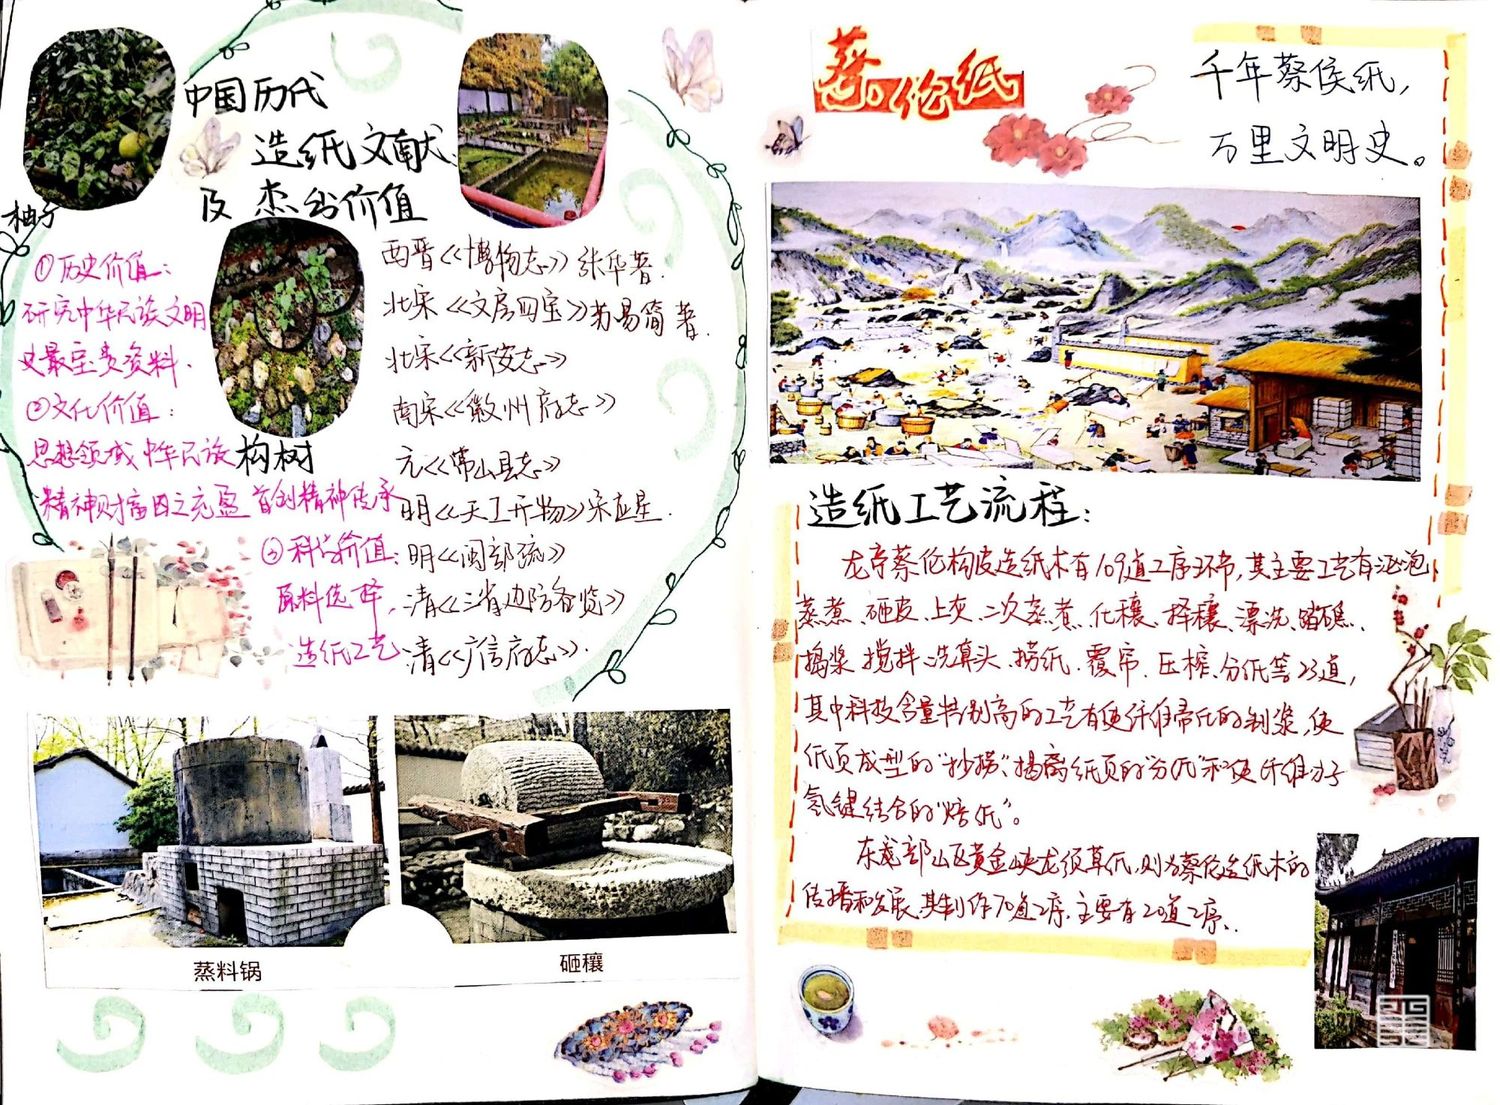 中国历代
造纸文献
及杰出价值
柚子
①历史价值：
研究中华民族文明
史最宝贵资料.
②文化价值：
思想领域中华民族
精神财富因之充盈 首创精神传承
③科学价值：
原料选择，
造纸工艺
构树
西晋《博物志》张华著.
北宋《文房四宝》苏易简著.
北宋《新安志》
南宋《徽州府志》
元《常山县志》
明《天工开物》宋应星.
明《闽部疏》
清《三省边防备览》
清《广信府志》.
蒸料锅
砸穰
蔡伦纸
千年蔡侯纸，
万里文明史。
造纸工艺流程：
龙亭蔡伦构皮造纸术有109道工序环节，其主要工艺有浸泡
蒸煮、砸皮、上灰、二次蒸煮、化穰、择穰、漂洗、踏碓、
捣浆、搅拌、洗真头、捞纸、覆帘、压榨、分纸等23道，
其中科技含量特别高的工艺有使纤维帚化的制浆，使
纸页成型的"抄捞"、揭离纸页的"分纸"和使纤维分子
氢键结合的"焙纸"。
东南部山区黄金峡龙须草纸，则为蔡伦造纸术的
传播和发展，其制作70道工序，主要有20道工序.